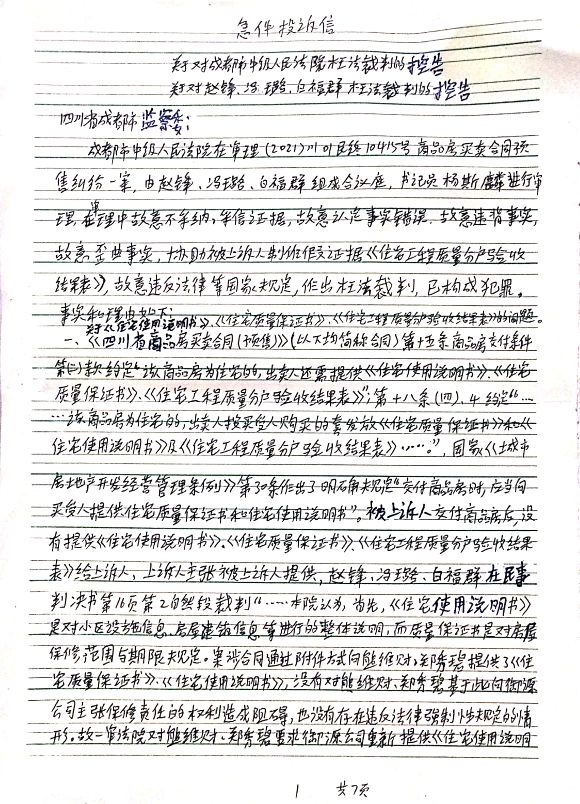 急件投诉信
对成都市中级人民法院枉法裁判的控告
对赵锋、冯璐、白福群枉法裁判的控告
四川省成都市监察委:
成都市中级人民法院在审理(2021)川01民终10415号商品房买卖合同预
售纠纷一案,由赵锋、冯璐、白福群组成合议庭,书记员杨斯麟进行审
理,在审理中故意不采纳、采信证据,故意认定事实错误、故意违背事实,
故意歪曲事实,协助被上诉人制作假证据《住宅工程质量分户验收
结果表》,故意违反法律等国家规定,作出枉法裁判,已构成犯罪。
事实和理由如下:
《住宅使用说明书》、《住宅质量保证书》、《住宅工程质量分户验收结果表》的问题。
一、《四川省商品房买卖合同(预售)》(以下均简称合同)第十五条商品房交付条件
第(二)款约定“该商品房为住宅的,出卖人还需提供《住宅使用说明书》、《住宅
质量保证书》、《住宅工程质量分户验收结果表》”;第十八条(四)、4约定“……
……该商品房为住宅的,出卖人按买受人购买的套发放《住宅质量保证书》和《
住宅使用说明书》及《住宅工程质量分户验收结果表》……。”,国家《城市
房地产开发经营管理条例》第30条作出了明确规定“交付商品房时,应当向
买受人提供住宅质量保证书和住宅使用说明书”。被上诉人交付商品房后,没
有提供《住宅使用说明书》、《住宅质量保证书》、《住宅工程质量分户验收结果
表》给上诉人,上诉人主张被上诉人提供,赵锋、冯璐、白福群在民事
判决书第16页第2自然段裁判“……本院认为,首先,《住宅使用说明书》
是对小区设施信息、房屋建筑信息等进行的整体说明,而质量保证书是对房屋
保修范围与期限规定。案涉合同通过附件方式向熊维财、郑秀碧提供了《住
宅质量保证书》、《住宅使用说明书》,没有对熊维财、郑秀碧基于此向御源
公司主张保修责任的权利造成阻碍,也没有存在违反法律强制性规定的情
形。故一审法院对熊维财、郑秀碧要求御源公司重新提供《住宅使用说明
1 共7页